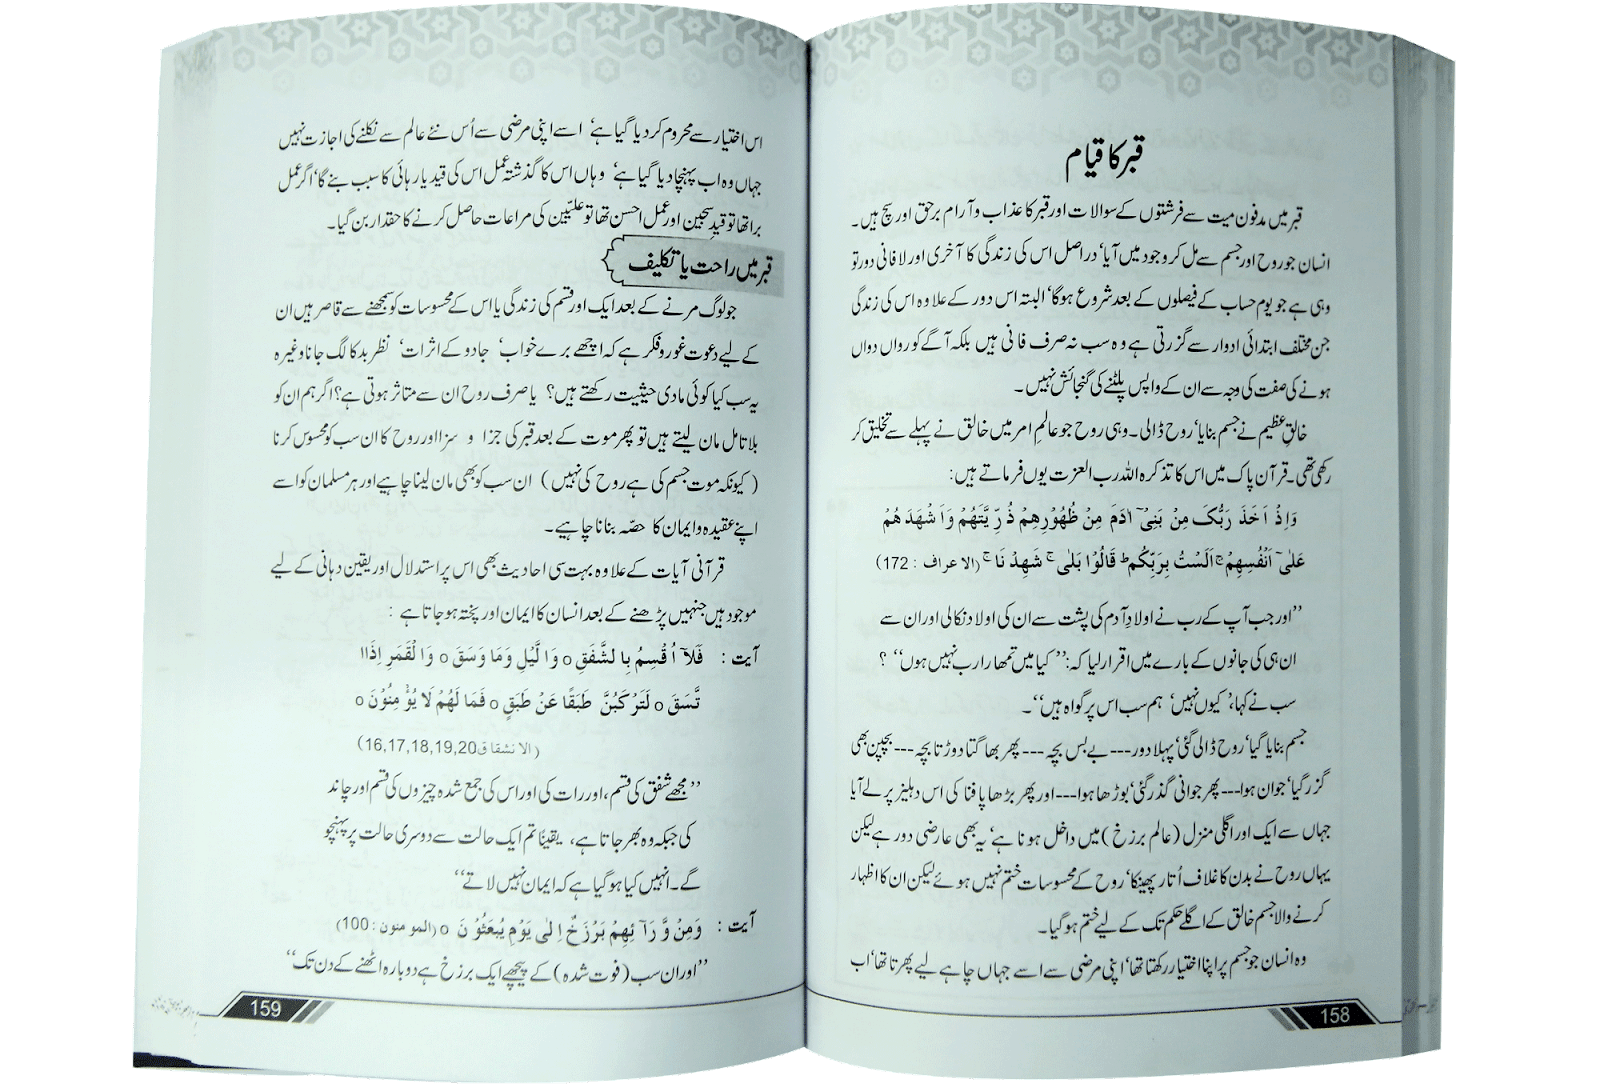 قبر کا قیام
قبر میں مدفون میت سے فرشتوں کے سوالات اور قبر کا عذاب و آرام برحق اور سچ ہیں۔
انسان جو روح اور جسم سے مل کر وجود میں آیا‘ دراصل اس کی زندگی کا آخری اور لافانی دور تو
وہی ہے جو یوم حساب کے فیصلوں کے بعد شروع ہوگا‘ البتہ اس دور کے علاوہ اس کی زندگی
جن مختلف ابتدائی ادوار سے گزرتی ہے وہ سب نہ صرف فانی ہیں بلکہ آگے کو رواں دواں
ہونے کی صفت کی وجہ سے ان کے واپس پلٹنے کی گنجائش نہیں۔
خالقِ عظیم نے جسم بنایا‘ روح ڈالی۔ وہی روح جو عالمِ امر میں خالق نے پہلے سے تخلیق کر
رکھی تھی۔ قرآن پاک میں اس کا تذکرہ اللہ رب العزت یوں فرماتے ہیں:
وَاِذْ اَخَذَ رَبُّکَ مِنْ بَنِیْٓ اٰدَمَ مِنْ ظُهُوْرِهِمْ ذُرِّیَّتَهُمْ وَاَشْهَدَهُمْ
عَلٰٓی اَنْفُسِهِمْ ۚ اَلَسْتُ بِرَبِّکُمْ ؕ قَالُوْا بَلٰی ۚ شَهِدْنَا ۚ (الاعراف : 172)
’’اور جب آپ کے رب نے اولادِ آدم کی پشت سے ان کی اولاد نکالی اور ان سے
ان ہی کی جانوں کے بارے میں اقرار لیا کہ: ’’کیا میں تمھارا رب نہیں ہوں‘‘ ؟
سب نے کہا، ’کیوں نہیں‘ ہم سب اس پر گواہ ہیں‘‘۔
جسم بنایا گیا‘ روح ڈالی گئی‘ پہلا دور --- بے بس بچہ --- پھر بھاگتا دوڑتا بچہ --- بچپن بھی
گزر گیا‘ جوان ہوا --- پھر جوانی گذر گئی‘ بوڑھا ہوا --- اور پھر بڑھاپا فنا کی اس دہلیز پر لے آیا
جہاں سے ایک اور اگلی منزل (عالم برزخ) میں داخل ہونا ہے‘ یہ بھی عارضی دور ہے لیکن
یہاں روح نے بدن کا غلاف اُتار پھینکا‘ روح کے محسوسات ختم نہیں ہوئے لیکن ان کا اظہار
کرنے والا جسم خالق کے اگلے حکم تک کے لیے ختم ہوگیا۔
وہ انسان جو جسم پر اپنا اختیار رکھتا تھا‘ اپنی مرضی سے اسے جہاں چاہے لیے پھرتا تھا‘ اب
158
اس اختیار سے محروم کر دیا گیا ہے‘ اسے اپنی مرضی سے اُس نئے عالم سے نکلنے کی اجازت نہیں
جہاں وہ اب پہنچا دیا گیا ہے‘ وہاں اس کا گذشتہ عمل اس کی قید یا رہائی کا سبب بنے گا‘ اگر عمل
برا تھا تو قیدِ سجین اور عمل احسن تھا تو علیّین کی مراعات حاصل کرنے کا حقدار بن گیا۔
قبر میں راحت یا تکلیف
جو لوگ مرنے کے بعد ایک اور قسم کی زندگی یا اس کے محسوسات کو سمجھنے سے قاصر ہیں ان
کے لیے دعوت غور و فکر ہے کہ اچھے برے خواب‘ جادو کے اثرات‘ نظر بد کا لگ جانا وغیرہ
یہ سب کیا کوئی مادی حیثیت رکھتے ہیں؟ یا صرف روح ان سے متاثر ہوتی ہے؟ اگر ہم ان کو
بلا تامل مان لیتے ہیں تو پھر موت کے بعد قبر کی جزا و سزا اور روح کا ان سب کو محسوس کرنا
(کیونکہ موت جسم کی ہے روح کی نہیں) ان سب کو بھی مان لینا چاہیے اور ہر مسلمان کو اسے
اپنے عقیدہ و ایمان کا حصّہ بنانا چاہیے۔
قرآنی آیات کے علاوہ بہت سی احادیث بھی اس پر استدلال اور یقین دہانی کے لیے
موجود ہیں جنہیں پڑھنے کے بعد انسان کا ایمان اور پختہ ہو جاتا ہے :
آیت : فَلَآ اُقْسِمُ بِالشَّفَقِ o وَالَّیْلِ وَمَا وَسَقَ o وَالْقَمَرِ اِذَا ا
تَّسَقَ o لَتَرْکَبُنَّ طَبَقًا عَنْ طَبَقٍ o فَمَا لَهُمْ لَا یُؤْمِنُوْنَ o
(الانشقاق16,17,18,19,20)
’’مجھے شفق کی قسم، اور رات کی اور اس کی جمع شدہ چیزوں کی قسم اور چاند
کی جبکہ وہ بھر جاتا ہے، یقینًا تم ایک حالت سے دوسری حالت پر پہنچو
گے۔ انہیں کیا ہوگیا ہے کہ ایمان نہیں لاتے‘‘
آیت : وَمِنْ وَّرَآئِهِمْ بَرْزَخٌ اِلٰی یَوْمِ یُبْعَثُوْنَ o (المومنون : 100)
’’اور ان سب (فوت شدہ) کے پیچھے ایک برزخ ہے دوبارہ اٹھنے کے دن تک‘‘
159